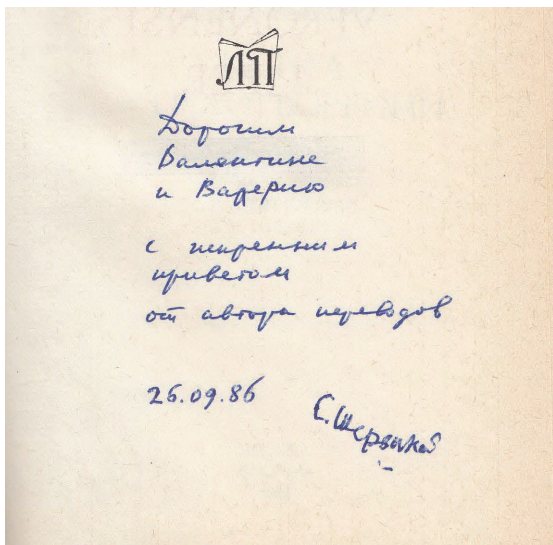 ЛП
Дорогим
Валентине
и Валерию
с искренним
приветом
от автора переводов
26.09.86
С. Шервинский